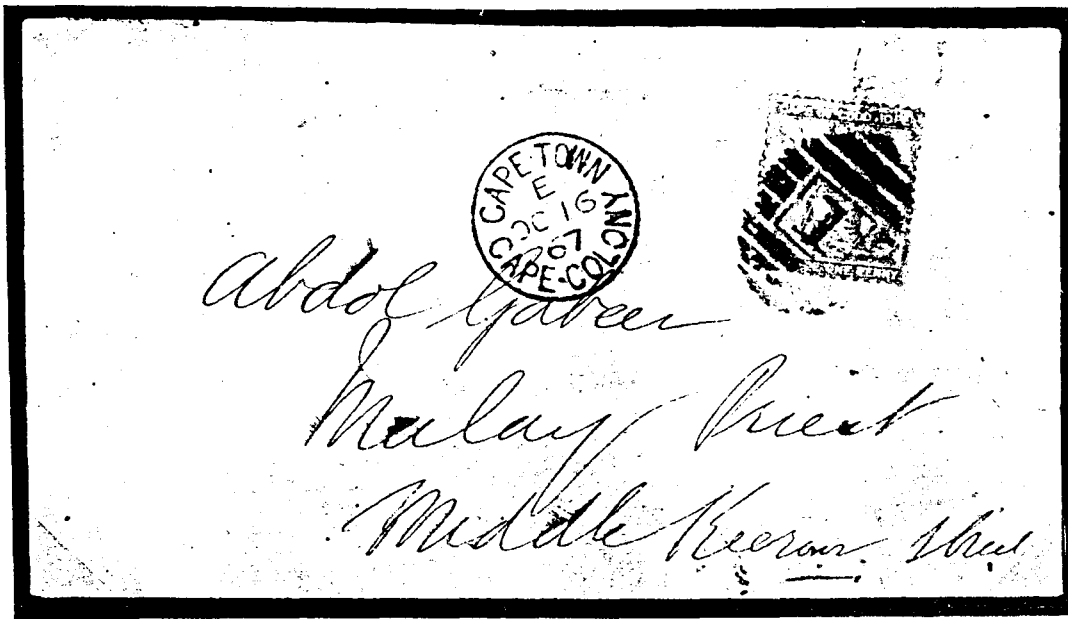 CAPE OF GOOD HOPE
CAPE·TOWN
E
OC 16
67
CAPE·COLONY
Abdol Gabeer
Malay Priest
Middle Keerom Street